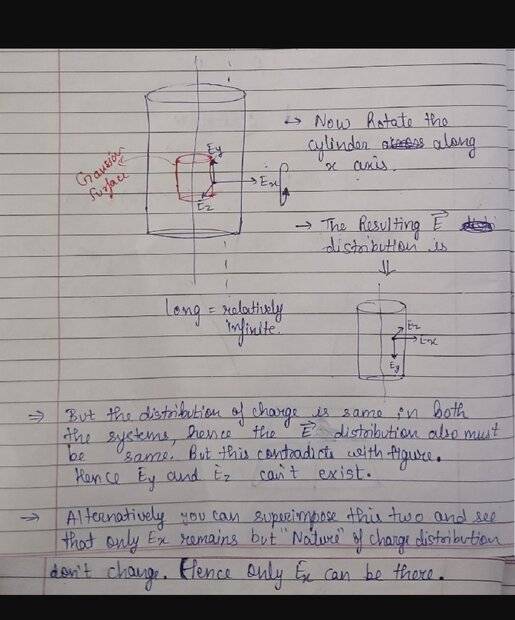 ↳ Now Rotate the
cylinder along
x axis.
Gaussian
Surface
Ey
Ex
Ez
→ The Resulting E⃗
distribution is
⇓
long = relatively
infinite.
Ez
Ex
Ey
⇒ But the distribution of charge is same in both
the systems, hence the E⃗ distribution also must
be same. But this contradicts with figure.
Hence Ey and Ez can't exist.
⇒ Alternatively you can superimpose this two and see
that only Ex remains but "Nature" of charge distribution
don't change. Hence only Ex can be there.